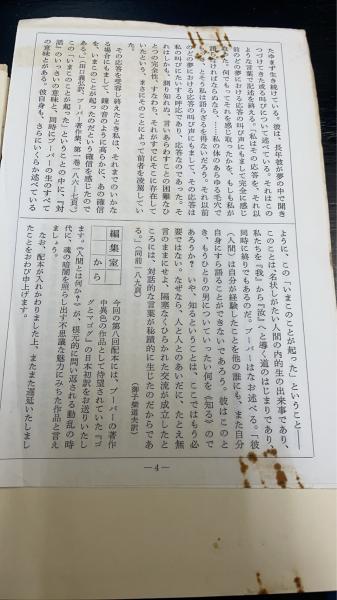 たゆまず生き続けている。彼は、長年彼が夢の中で聞き
つづけてきた或る叫びについて述べている。それはこの
ような言葉で記述を終える。「私はその応答を、それ以
前のどの夢における応答の叫び声にもまして完全に感じ
取った。何でもってそれを感じ取ったかを、もしも私が
ければならぬなら……私の体のあらゆる毛穴で
とそう私は語らざるを得ないだろう。それ以前
れのどの夢における応答の叫び声にもまして、その応答は
私の叫びにたいする呼応であり、応答なのであった。そ
れはしかも、測り知れぬ、言いあらわすことの困難なひ
とつの完全性、すなわち、それがすでにそこに存在して
いたという、まさにこのことによって前者を凌駕してい
た。
その応答を受容し終えたとき私は、それまでのいかな
る場合にもまして、鐘の音のように高らかに、あの確信
を、いまこのことが起ったのだという確信を感じたので
ある」（田口義弘訳、ブーバー著作集、第一巻一八六―七頁。）
この「いまこのことが起った」ということの中に、『対
話』のいっさいの意味と、同時にブーバーの生のすべて
の意味とがある。彼自身も、さらにいくらか述べている
ように、この「いまこのことが起った」ということ――
このことは、名状しがたい人間の内的生の出来事であり、
私たちを『我』から『汝』へと導く道のはじまりであり、
同時に終りでもあるのだ。ブーバーはなお述べる。「彼
（人間）は自分が経験したことを他の誰にも、また自分
自身にすら語ることができないであろう。彼はこのと
き、もうひとりの男についていったい何を《知る》ので
あろうか？　いや、知るということは、ここではもう必
要ではない。なぜなら、人と人とのあいだに、たとえ無
言のままにせよ、隔意なくひらかれた交流が成立したと
ころには、対話的な言葉が秘蹟的に生じたのだからであ
る。」（同前一八九頁）
（御子柴道夫訳）
編集室から
今回の第八回配本には、ブーバーの著作
中異色の作品として待望されていた『ゴ
グとマゴグ』の日本初訳をお送りいたし
ます。《人間とは何か？》が、根元的に問い返される動乱の時
代に、魂の暗闇を照らし出す不思議な魅力にみちた作品と言え
ましょう。
なお、配本が入れかわりました上、またまた遅延いたしまし
たことをおわび申上げます。
― 4 ―